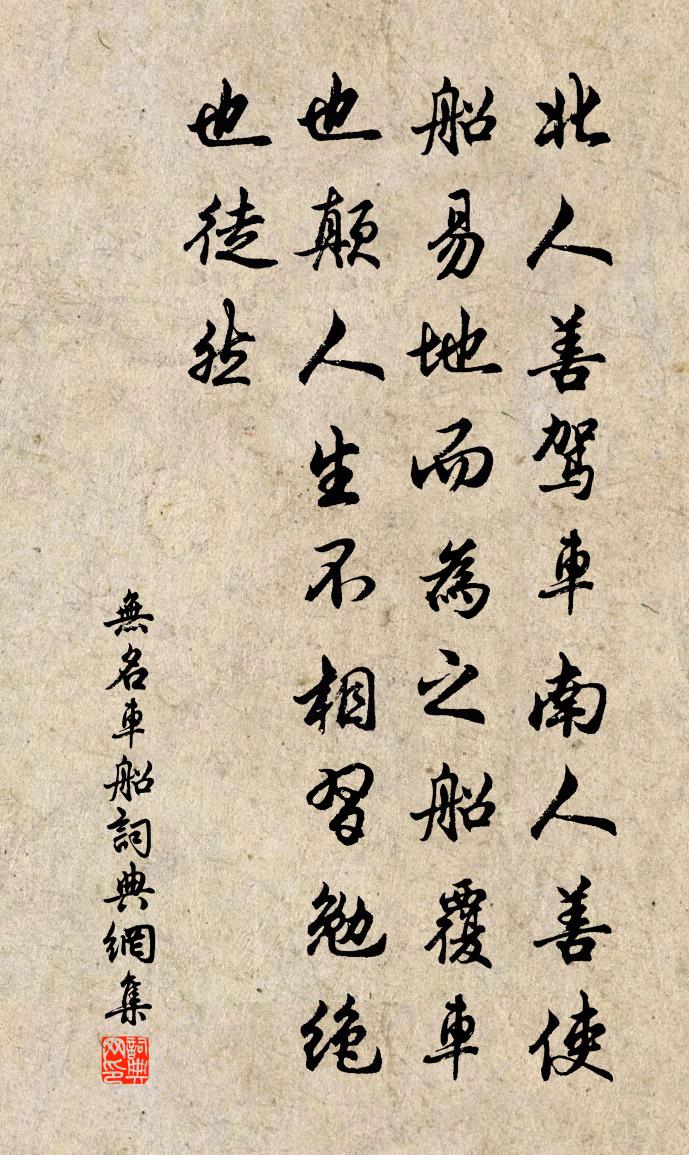 北人善駕車南人善使
船易地而為之船覆車
也顛人生不相習勉绝
也徒然
無名車船詞典網集
詞典網印